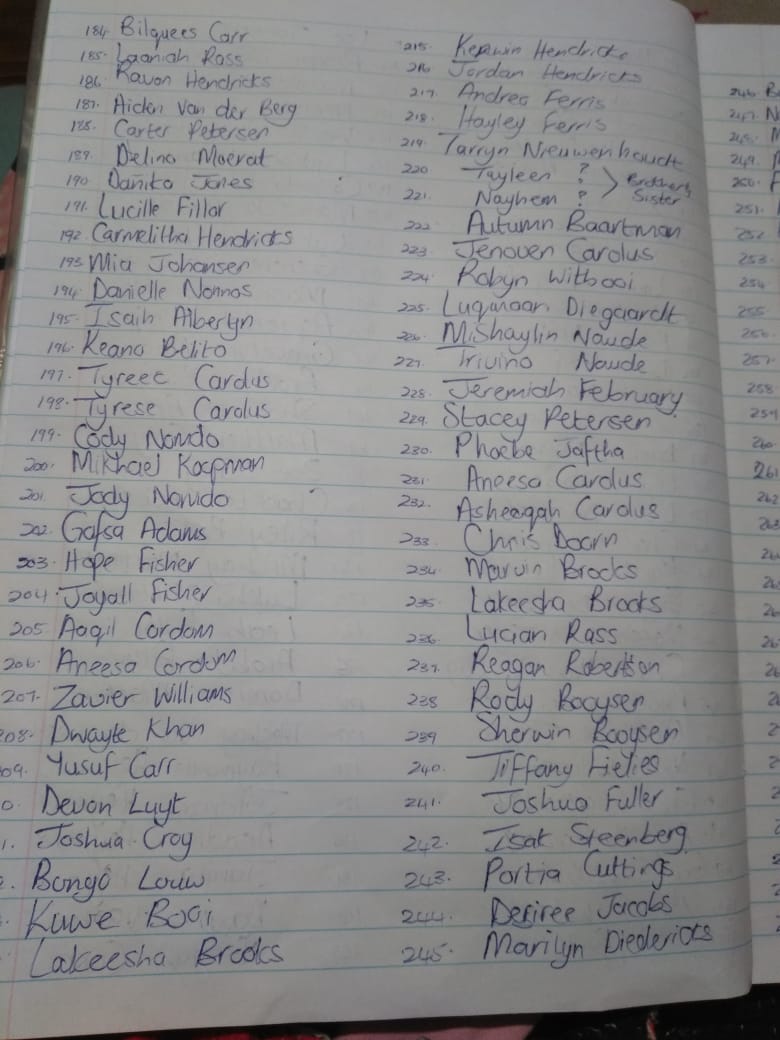 184. Bilquees Carr
185. Laaniah Ross
186. Ravon Hendricks
187. Aiden Van der Berg
188. Carter Petersen
189. Delino Moerat
190 Danito Jones
191. Lucille Fillar
192. Carmelitha Hendricks
193 Mia Johansen
194. Danielle Nannos
195. Isaih Alberlyn
196. Keano Belito
197. Tyreec Carolus
198. Tyrese Carolus
199. Cody Nomdo
200. Mikhael Koopman
201. Jody Nomdo
202. Gafsa Adams
203. Hope Fisher
204. Jayall Fisher
205 Aaqil Cordom
206. Aneesa Cordom
207. Zavier Williams
208. Dwayte Khan
09. Yusuf Carr
0. Devon Luyt
1. Joshua Croy
Bongo Louw
Kuwe Booi
Lakeesha Brooks
215. Kerwin Hendricks
216 Jordan Hendricks
217. Andrea Ferris
218. Hayley Ferris
219. Tarryn Nieuwenhoudt
220 Tayleen ?
221. Nayhem ? > Brother & Sister
222. Autumn Baartman
223 Jenoven Carolus
224. Robyn Witbooi
225. Luqmaan Diegaardt
226. Mishaylin Naude
227. Triuino Naude
228. Jeremiah February
229. Stacey Petersen
230. Phoebe Jaftha
231. Aneesa Carolus
232. Asheeqah Carolus
233 Chris Doorn
234. Marvin Brooks
235. Lakeesha Brooks
236. Lucian Rass
237. Reagan Robertson
238 Rody Booysen
239 Sherwin Booysen
240. Tiffany Fielies
241. Joshua Fuller
242. Isak Steenberg
243. Portia Cuttings
244. Desiree Jacobs
245. Marilyn Diedericks
246. B
247. N
248. M
249.
250.
251.
252
253.
254
255.
256.
257.
258
259
260.
261
262
263